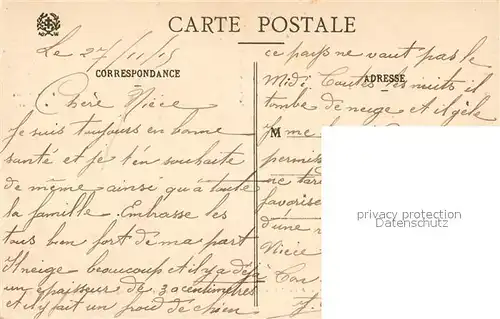 CARTE POSTALE
Le 27/11/15
CORRESPONDANCE
Chère Nièce
Je suis toujours en bonne
santé et je t'en souhaite
de même ainsi qu'à toute
la famille. Embrasse les
tous bien fort de ma part
Il neige beaucoup et il y a déjà
un épaisseur de 30 centimètres
et il y fait un froid de chien
ce pays ne vaut pas le
Midi toutes les nuits il
ADRESSE
tombe de neige et il gèle
M
permis
favorise
d'une
Nièce
Ton
privacy protection
www.oldthing.com